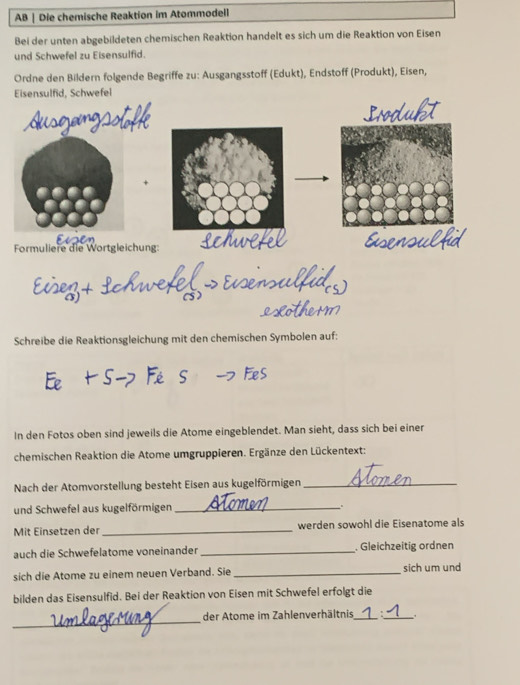 AB | Die chemische Reaktion im Atommodell
Bei der unten abgebildeten chemischen Reaktion handelt es sich um die Reaktion von Eisen
und Schwefel zu Eisensulfid.
Ordne den Bildern folgende Begriffe zu: Ausgangsstoff (Edukt), Endstoff (Produkt), Eisen,
Eisensulfid, Schwefel
Ausgangsstoffe
Produkt
+
Eisen
Schwefel
Eisensulfid
Formuliere die Wortgleichung:
Eisen(s) + Schwefel(s) → Eisensulfid(s)
exotherm
Schreibe die Reaktionsgleichung mit den chemischen Symbolen auf:
Fe + S → Fe S → FeS
In den Fotos oben sind jeweils die Atome eingeblendet. Man sieht, dass sich bei einer
chemischen Reaktion die Atome umgruppieren. Ergänze den Lückentext:
Nach der Atomvorstellung besteht Eisen aus kugelförmigen Atomen
und Schwefel aus kugelförmigen Atomen.
Mit Einsetzen der ____ werden sowohl die Eisenatome als
auch die Schwefelatome voneinander ____. Gleichzeitig ordnen
sich die Atome zu einem neuen Verband. Sie ____ sich um und
bilden das Eisensulfid. Bei der Reaktion von Eisen mit Schwefel erfolgt die
Umlagerung der Atome im Zahlenverhältnis 1:1.